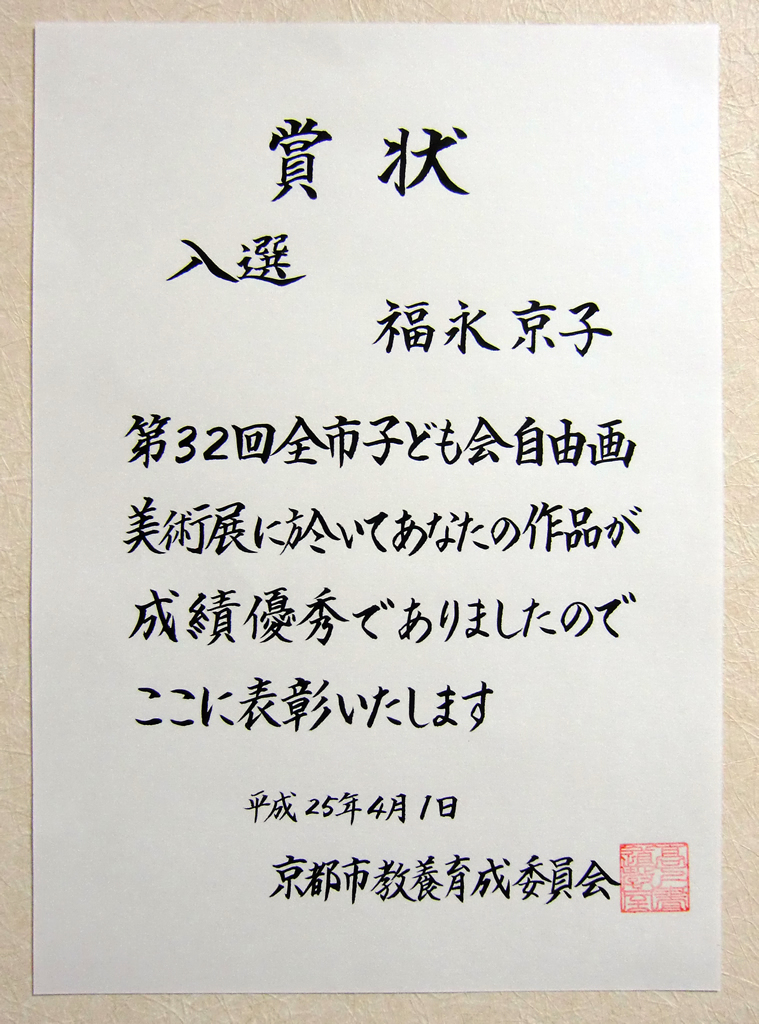 賞状
入選
福永京子
第32回全市子ども会自由画
美術展に於いてあなたの作品が
成績優秀でありましたので
ここに表彰いたします
平成25年4月1日
京都市教養育成委員会